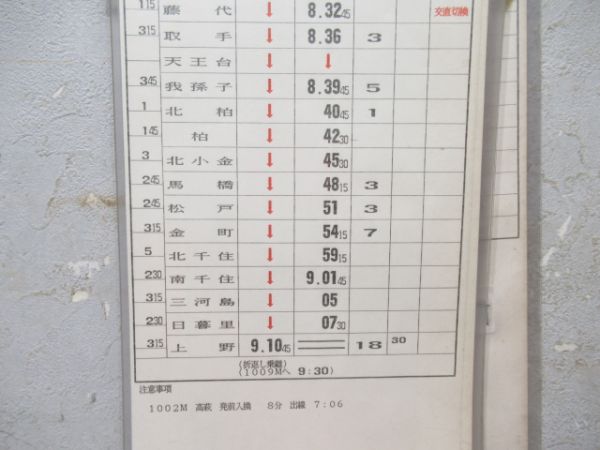 115 藤代 ↓ 8.32 45 交直切換
315 取手 ↓ 8.36 3
天王台 ↓ ↓
345 我孫子 ↓ 8.39 45 5
1 北柏 ↓ 40 45 1
145 柏 ↓ 42 30
3 北小金 ↓ 45 30
245 馬橋 ↓ 48 15 3
245 松戸 ↓ 51 3
315 金町 ↓ 54 15 7
5 北千住 ↓ 59 15
230 南千住 ↓ 9.01 45
315 三河島 ↓ 05
230 日暮里 ↓ 07 30
315 上野 9.10 45 18 30
(折返し乗継)
(1009Mへ 9:30)
注意事項
1002M 高萩 発前入換 8分 出線 7:06